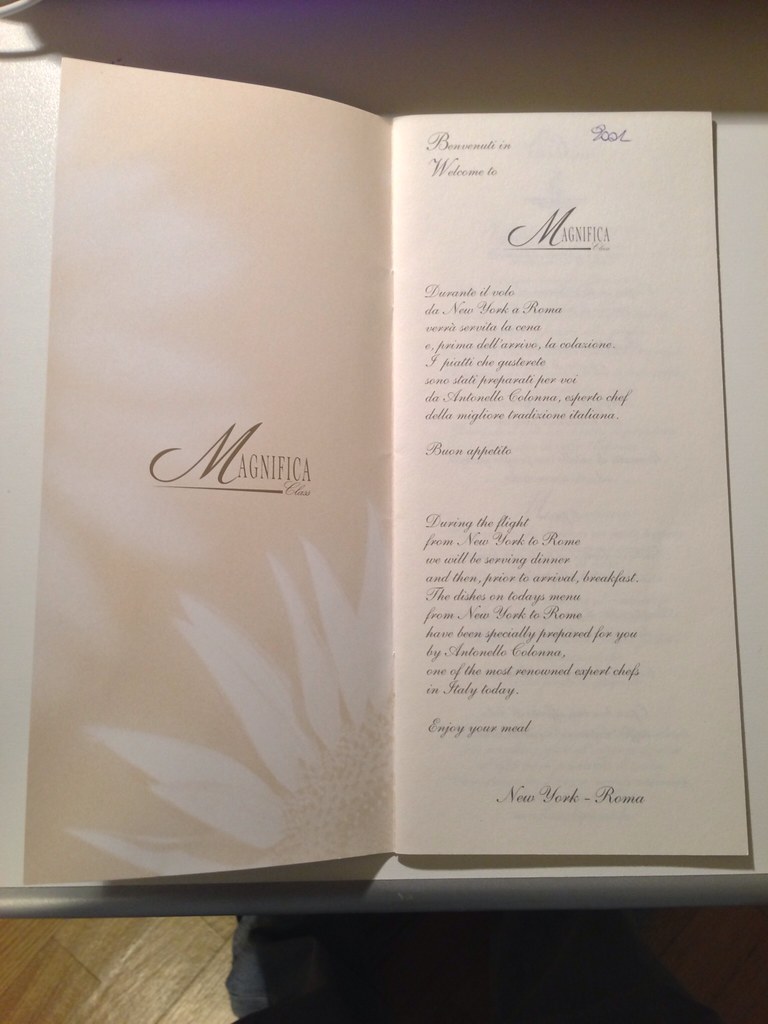 MAGNIFICA
Class
2001
Benvenuti in
Welcome to
MAGNIFICA
Class
Durante il volo
da New York a Roma
verrà servita la cena
e, prima dell'arrivo, la colazione.
I piatti che gusterete
sono stati preparati per voi
da Antonello Colonna, esperto chef
della migliore tradizione italiana.
Buon appetito
During the flight
from New York to Rome
we will be serving dinner
and then, prior to arrival, breakfast.
The dishes on todays menu
from New York to Rome
have been specially prepared for you
by Antonello Colonna,
one of the most renowned expert chefs
in Italy today.
Enjoy your meal
New York - Roma